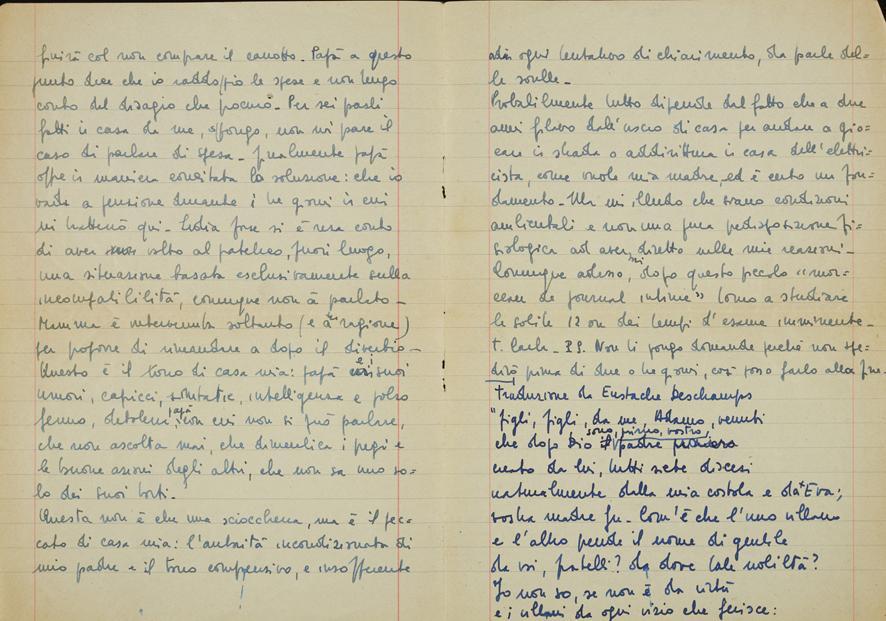 finirà col non comprare il canotto. Papà a questo
punto dice che io raddoppio le spese e non tengo
conto del disagio che procuro. Per sei pasti
fatti in casa da me, suppongo, non mi pare il
caso di parlare di spesa. Finalmente papà
offre in maniera concitata la soluzione: che io
vada a pensione durante i tre giorni in cui
mi tratterrò qui. Lidia forse si è resa conto
di aver volto al patetico, fuori luogo,
una situazione basata esclusivamente sulla
incompatibilità, comunque non à parlato -
Mamma è intervenuta soltanto (e à ragione)
per proporre di rimandare a dopo il diverbio -
Questo è il tono di casa mia: papà e i suoi
umori, capricci, simpatie, intelligenza e polso
fermo, papà con cui non si può parlare,
che non ascolta mai, che dimentica i pregi e
le buone azioni degli altri, che non sa uno so=
lo dei suoi torti.
Questa non è che una sciocchezza, ma è il pec=
cato di casa mia: l'autorità incondizionata di
mio padre e il tono comprensivo, e insofferente
ogni tentativo di chiarimento, da parte del=
le sorelle -
Probabilmente tutto dipende dal fatto che a due
anni filavo dall'uscio di casa per andare a gio=
care in strada o addirittura in casa dell'elettri=
cista, come vuole mia madre, ed è certo un fon=
damento. Ma mi illudo che siano condizioni
ambientali e non una pura predisposizione fi=
siologica ad avermi diretto nelle mie reazioni -
Comunque adesso, dopo questo piccolo "mor=
ceau de journal intime" torno a studiare
le solite 12 ore dei tempi d'esame imminente -
P.S. Non ti pongo domande perché non spe=
dirò prima di due o tre giorni, così posso farlo alla fine -
Traduzione da Eustache Deschamps
"figli, figli, da me, Adamo, venuti
che dopo Dio sono, primo, vostro, padre
creato da lui, tutti siete discesi
naturalmente dalla mia costola e da Eva;
vostra madre fu. Com'è che l'uno villano
e l'altro prende il nome di gentile
da voi, fratelli? da dove tale nobiltà?
Io non so, se non è da virtù
e i villani da ogni vizio che ferisce: